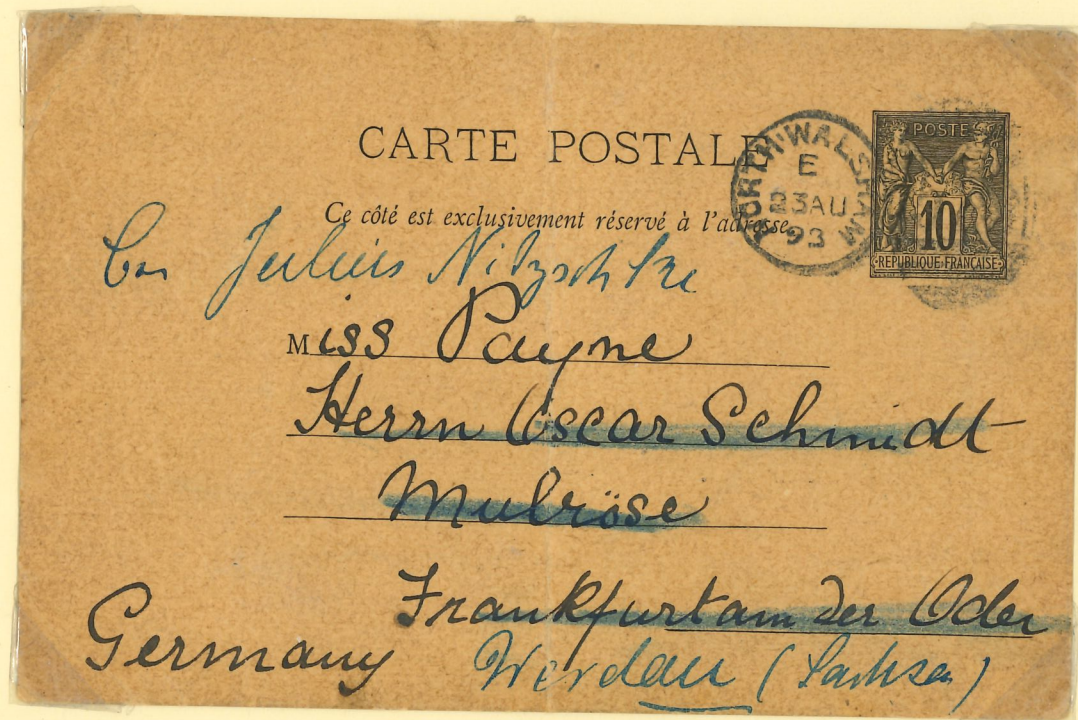 CARTE POSTALE
Ce côté est exclusivement réservé à l'adresse.
NORTH WALSHAM
E
23 AU
93
POSTE
10
REPUBLIQUE FRANÇAISE
Julius Nitzschke
Miss Payne
Herrn Oscar Schmidt
Mulröse
Frankfurt am der Oder
Germany
Werdau (Sachsen)